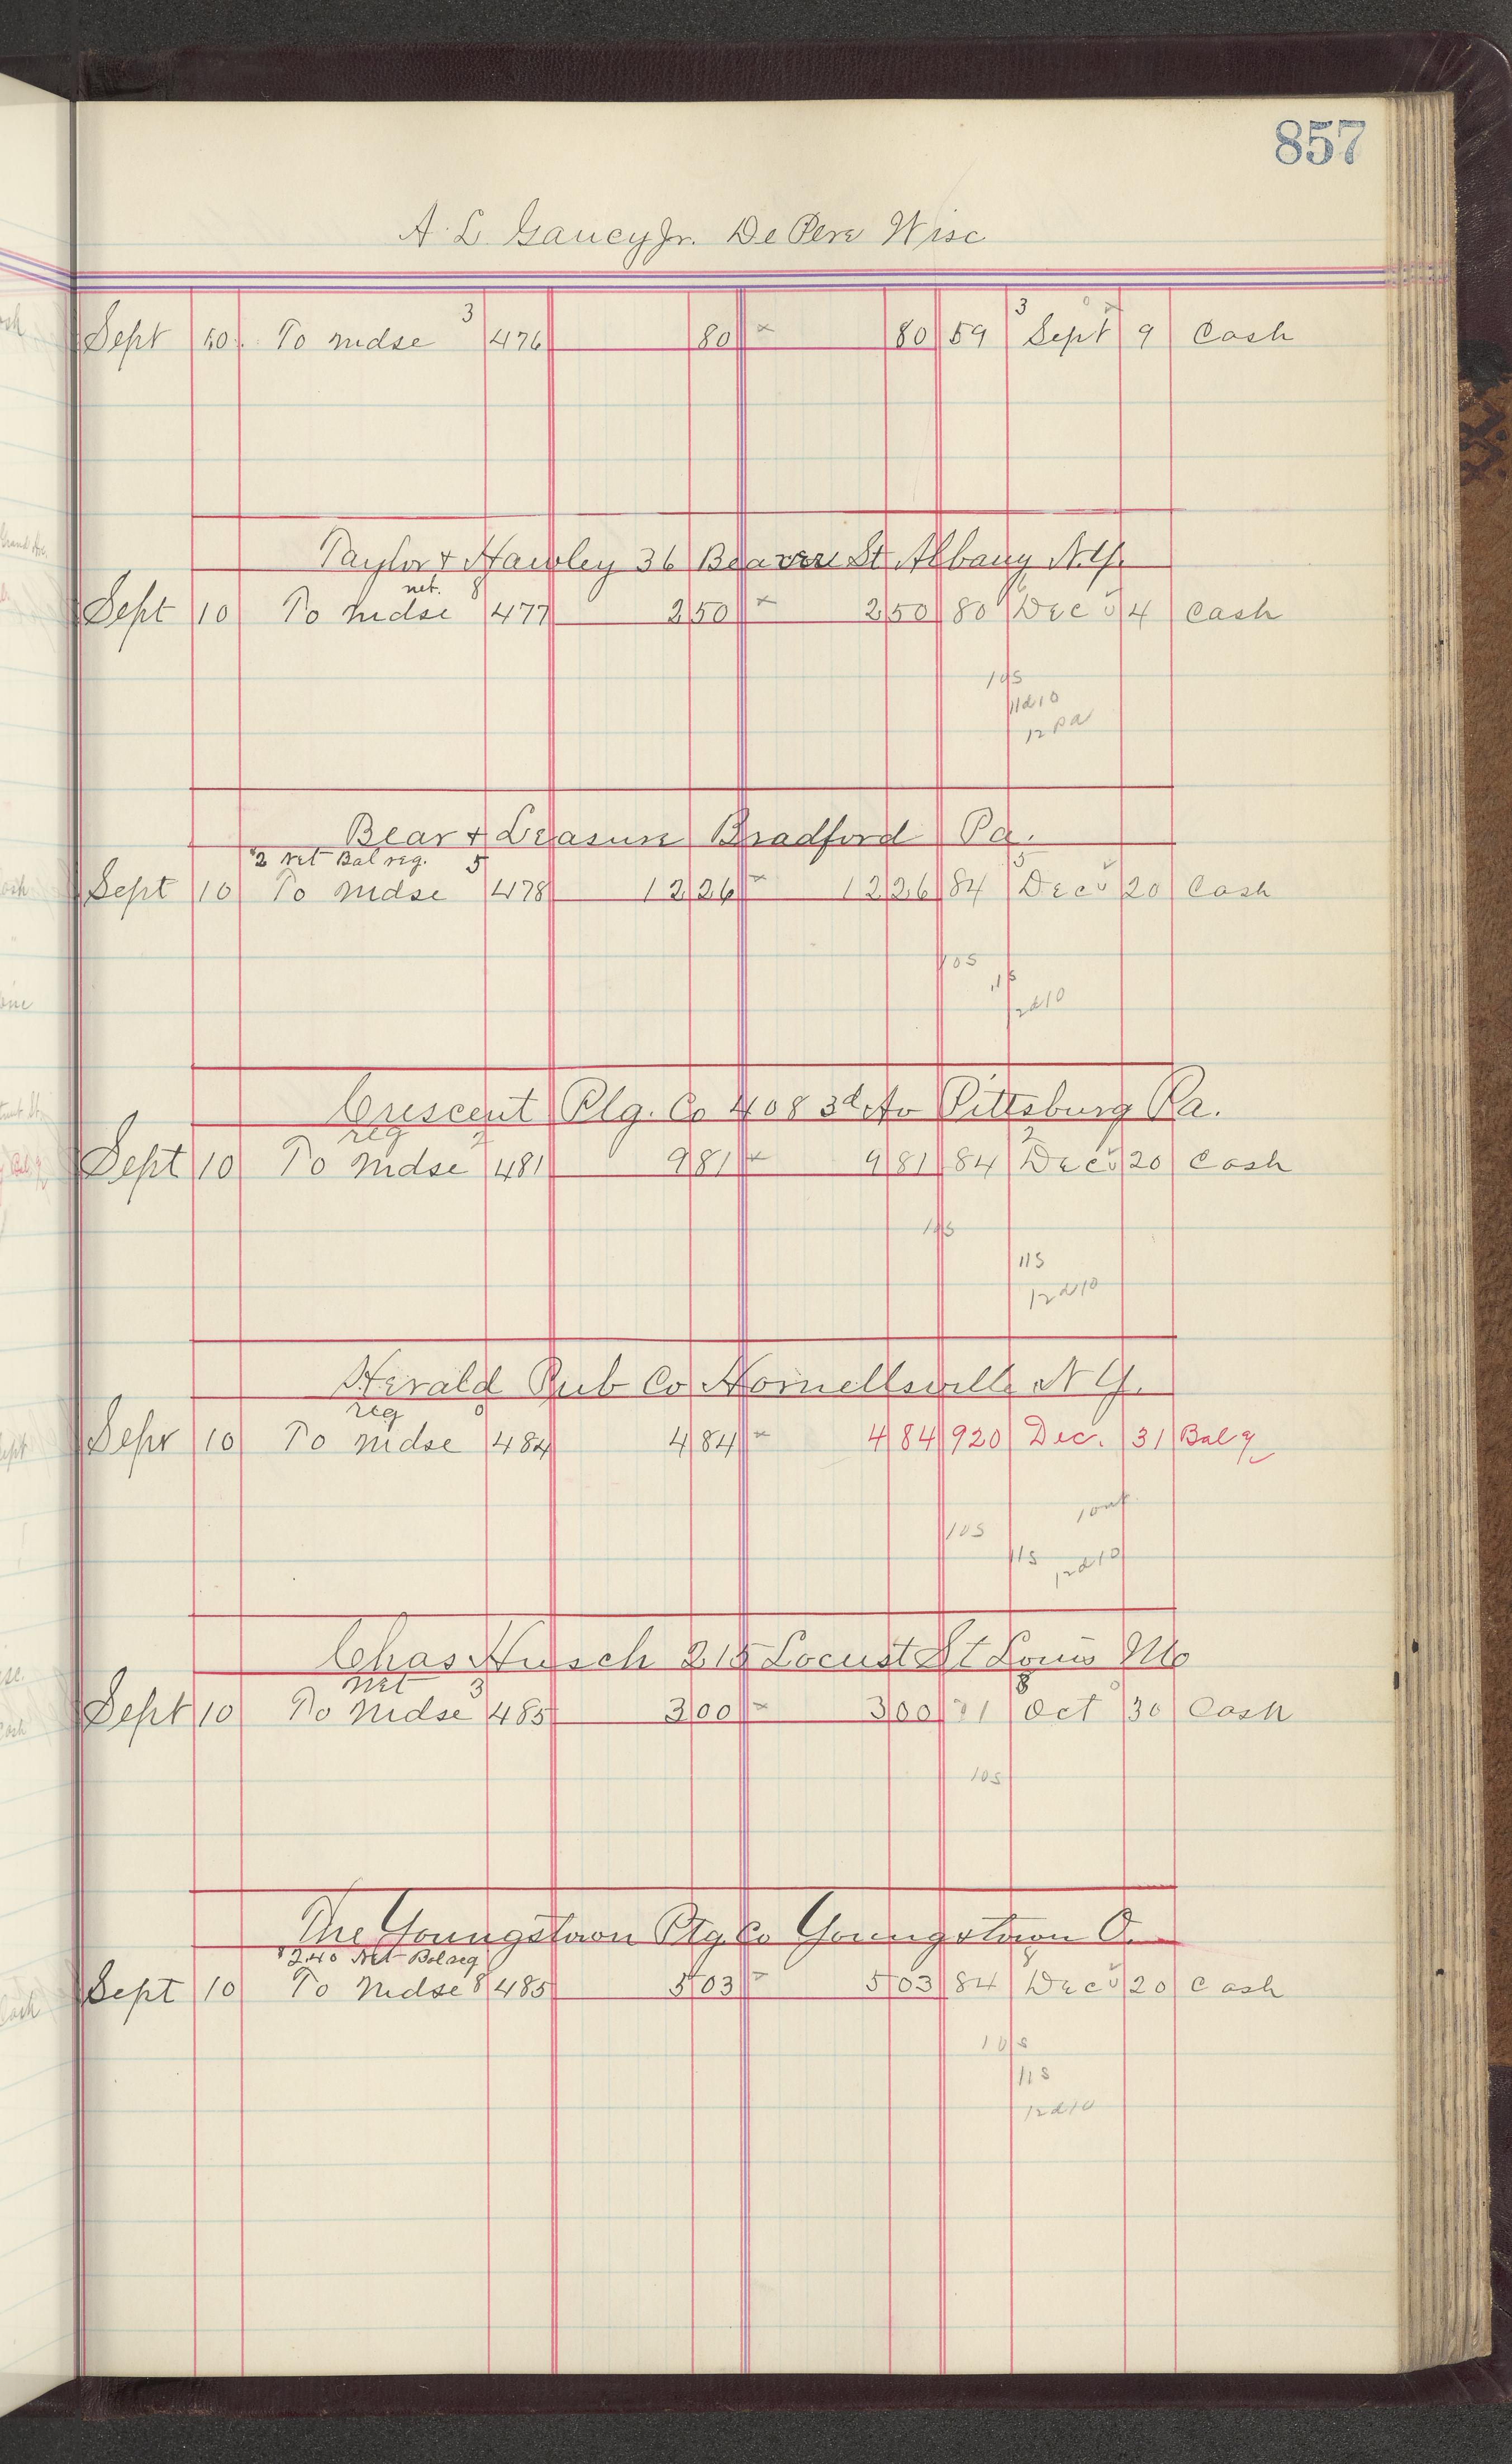 857
A. L. Gaucy Jr. De Pere Wisc
3 3
Sept 10 To mdse 476 80 80 59 Sept 9 Cash
Taylor & Hawley 36 Beaver St Albany N.Y.
net. 8
Sept 10 To mdse 477 2 50 2 50 80 Dec 4 Cash
10s
11d10
12 pd
Bear & Leasure Bradford Pa.
$2 Net Bal reg. 5 5
Sept 10 To mdse 478 12 26 12 26 84 Dec 20 Cash
10s
11s
12d10
Crescent Ptg. Co 408 3d Av Pittsburg Pa.
reg 2 2
Sept 10 To mdse 481 9 81 9 81 84 Dec 20 Cash
10s
11s
12d10
Herald Pub Co Hornellsville N.Y.
reg 0
Sept 10 To mdse 484 4 84 4 84 920 Dec. 31 Bal 9
10s
11s 12d10
Chas Husch 215 Locust St Louis Mo
Net 3 8
Sept 10 To mdse 485 3 00 3 00 71 Oct 30 Cash
10s
The Youngstown Ptg Co Youngstown O.
$2.40 Net Bal reg 8
Sept 10 To mdse 8 485 5 03 5 03 84 Dec 20 Cash
10s
11s
12d10